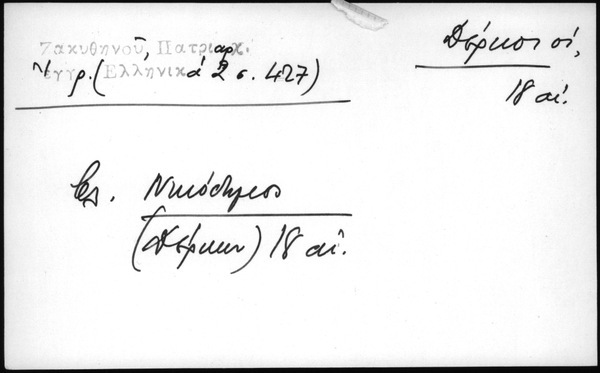 Ζακυθηνοῦ, Πατριαρχ.
έγγρ. (Ἑλληνικά 2 σ. 427)
Δέρκοι οἱ,
18 αἰ.
βλ. Νικόδημος
(Δέρκων) 18 αἰ.